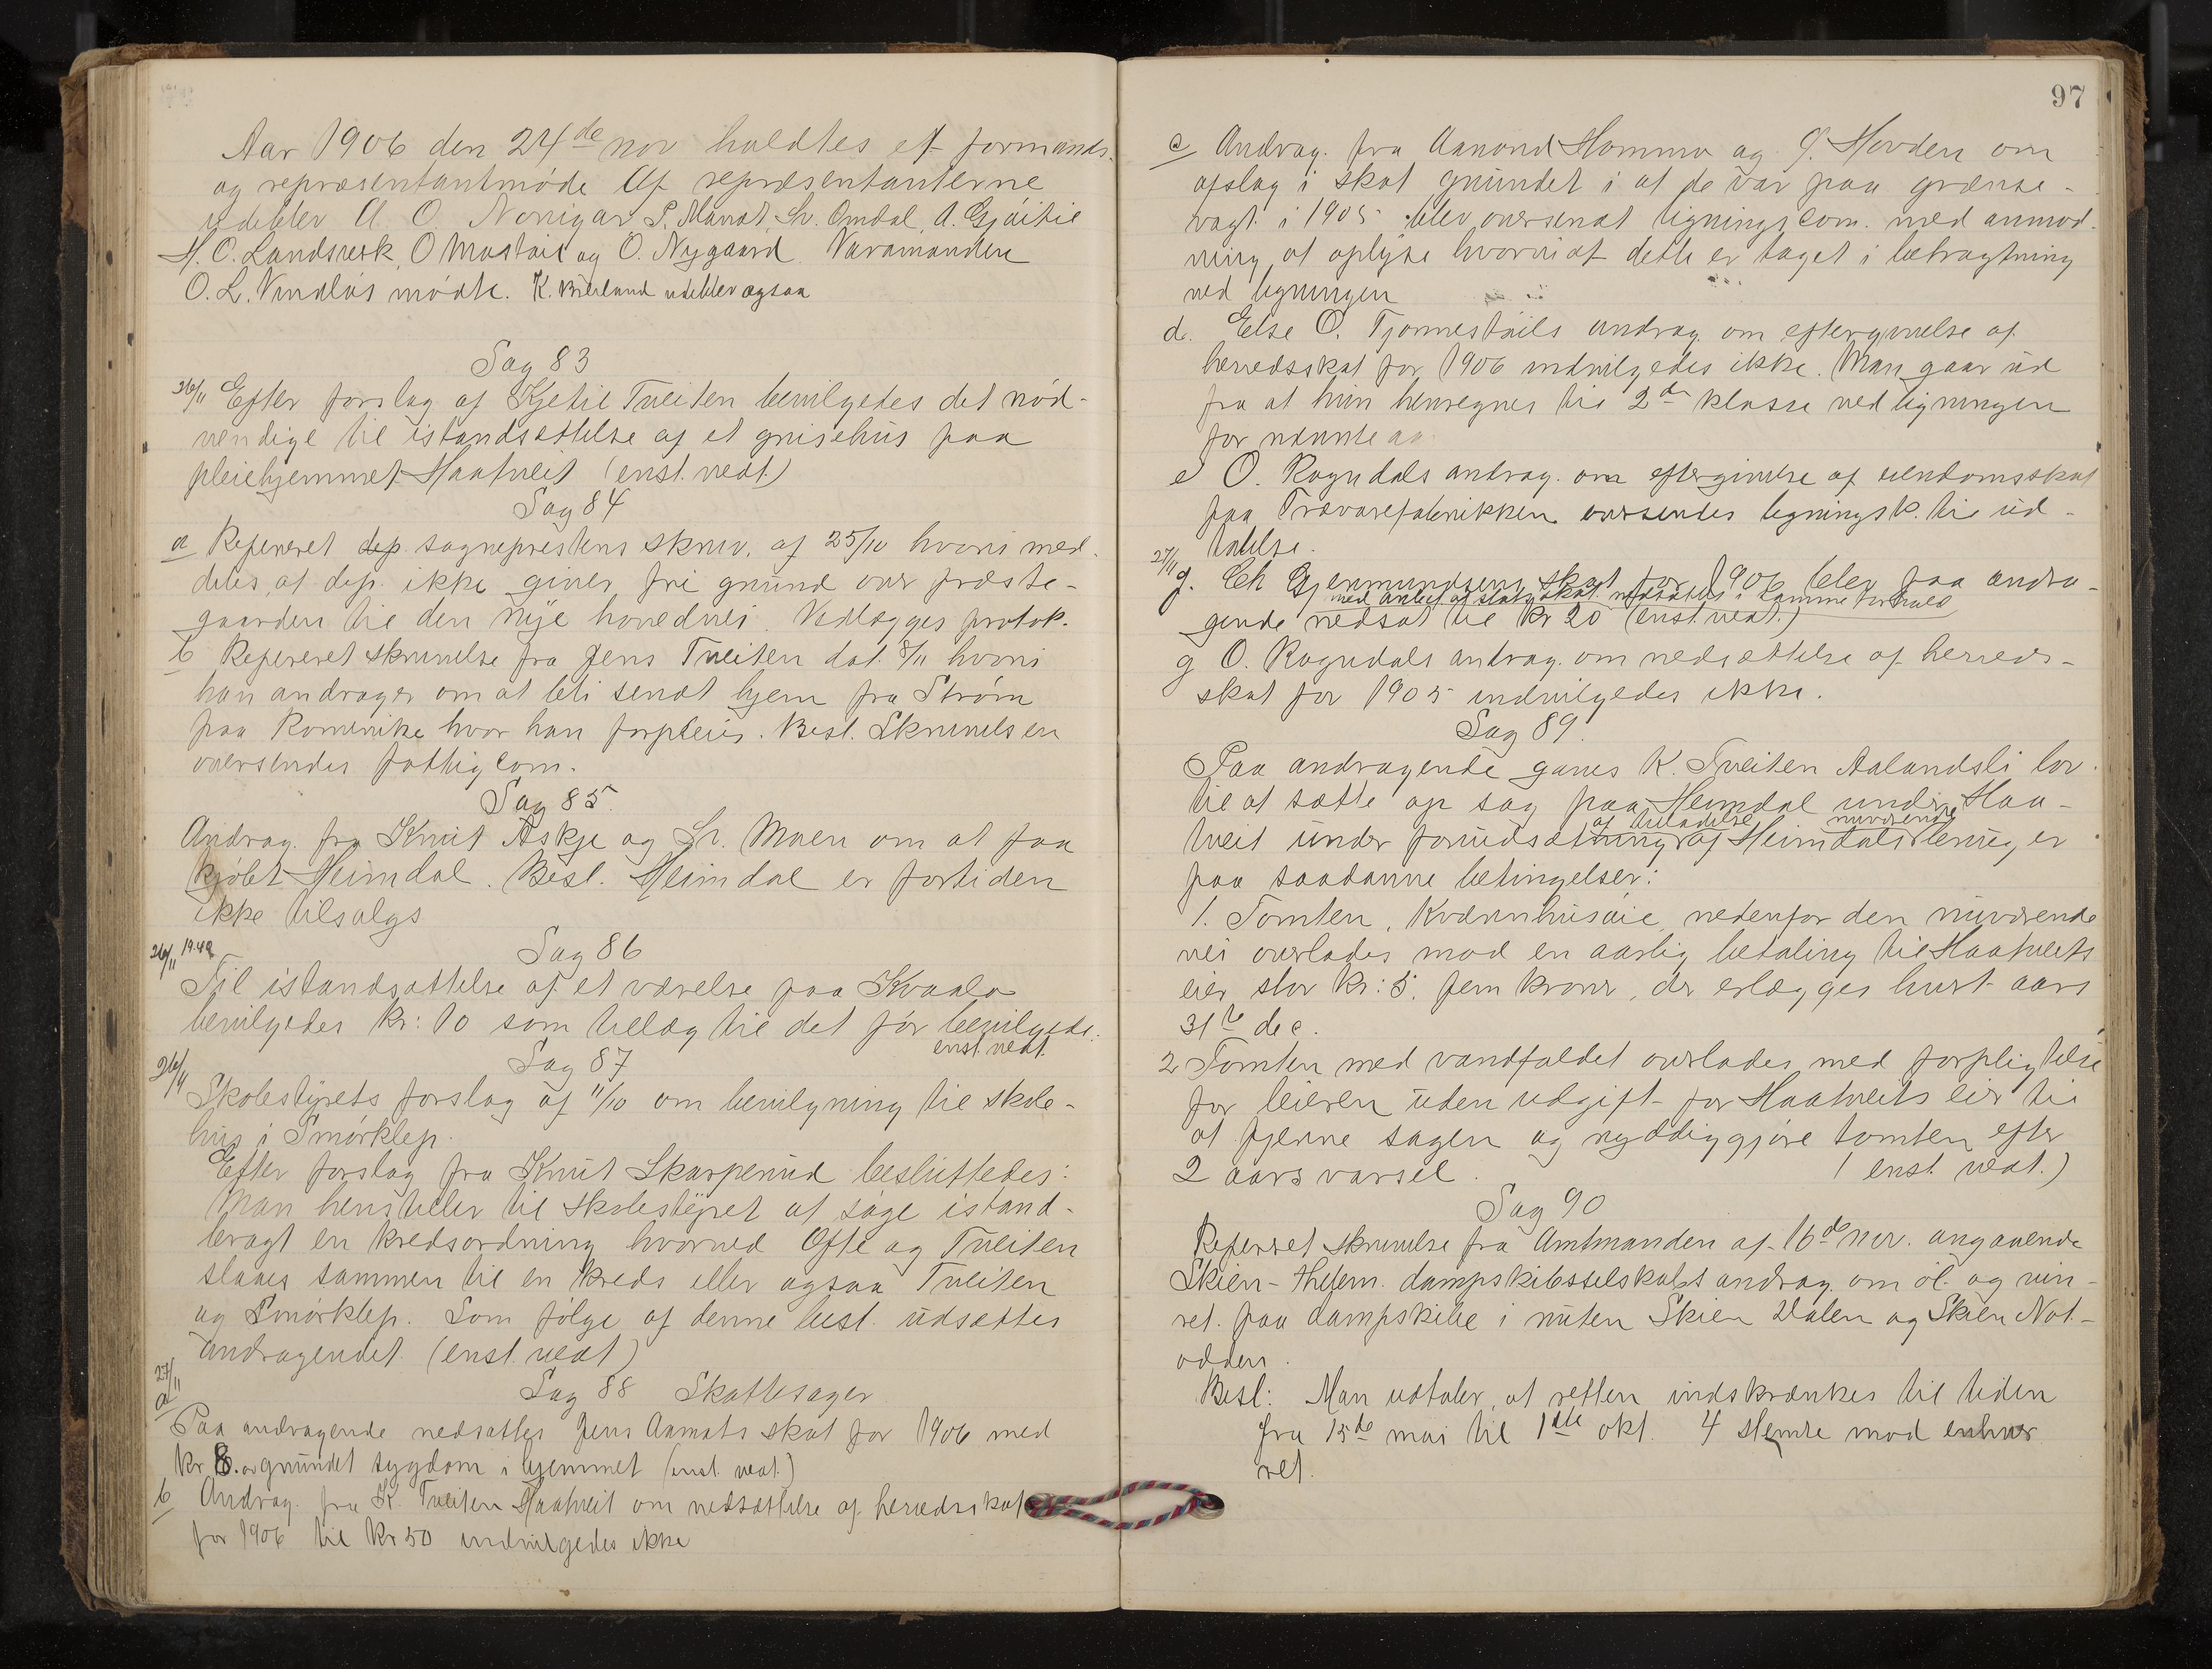 Aar 1906 den 24de nov holdtes et formands-
og repræsentantmøde Af repræsentanterne
udeblev A. O. P. Mandt, Sv. Omdal, A.
H. C. Landsverk, O og O. Nygaard. Varamanden
O. L. Vindlös mødte. K. udeblev ogsaa
Sag 83
26/11 Efter forslag af Kjetil Tveiten bevilgedes det nød-
vendige til istandsættelse af et grisehus paa
pleiehjemmet Haatveit (enst. vedt.)
Sag 84
a Refereret dep. sogneprestens skriv. af 25/10 hvori med-
deles, at dep. ikke giver fri grund over præste-
gaarden til den nye hovedvei. Vedlægges protok.
b Refereret skrivelse fra Jens Tveiten dat. 8/11 hvori
han andrager om at bli sendt hjem fra Strøm
paa Romerike hvor han forpleies. Besl. Skrivelsen
oversendes fattigcom.
Sag 85.
Andrag. fra Knut Askje og Sv. Moen om at faa
kjøbt Heimdal. Besl. Heimdal er fortiden
ikke tilsalgs
26/11 19.49 Sag 86
Til istandsættelse af et værelse paa Kvaale
bevilgedes kr: 10 som tillæg til det før bevilgede.
enst. vedt.
Sag 87
26/11 Skolestyrets forslag af 11/10 om bevilgning til skole-
hus i Smørklep.
Efter forslag fra Knut Skarperud besluttedes:
Man henstiller til skolestyret at søge istand-
bragt en kredsordning hvorved Ofte og Tveiten
slaaes sammen til en kreds eller ogsaa Tveiten
og Smørklep. Som følge af denne besl. udsættes
andragendet. (enst. vedt)
27/11 Sag 88 Skattesager
a
Paa andragende nedsattes Jens Aamots skat for 1906 med
kr 8.00 grundet sygdom i hjemmet (enst. vedt.)
b Andrag. fra K. Tveiten Haatveit om nedsættelse af herredsskat
for 1906 til kr 50 indvilgedes ikke
97
c Andrag. fra Aanond Hommo og G. Hovden om
afslag i skat grundet i at de var paa grænse-
vagt i 1905 blev oversendt ligningscom. med anmod-
ning at oplyse hvorvidt dette er taget i betragtning
ved ligningen
d. Else O. Tjønnestøils andrag. om eftergivelse af
herredsskat for 1906 indvilgedes ikke. Man gaar ud
fra at hun henregnes til 2den klasse ved ligningen
for nævnte aa
e O. Rogndals andrag. om eftergivelse af eiendomsskat
paa Trævarefabrikken oversendes ligningsk. til ud-
talelse.
27/11 f. Ch Gjermundsens skat for 1906 blev paa andra-
med anket af statsskat nedsættes i samme forhold
gende nedsat til kr 20 (enst. vedt.)
g O. Rogndals andrag. om nedsættelse af herreds-
skat for 1905 indvilgedes ikke.
Sag 89.
Paa andragende gaves K. Tveiten Aalandsli lov
til at sætte op sag paa Heimdal under Haa-
af tilladelse nuværende
tveit under forudsætning af Heimdals leier,
paa saadanne betingelser:
1. Tomten, Kværnhusøie, nedenfor den nuværende
vei overlades mod en aarlig betaling til Haatveits
eier stor kr: 5, fem kroner, der erlægges hvert aars
31te dec.
2 Tomten med vandfaldet overlades med forpligtelse
for leieren uden udgift for Haatveits eier til
at fjerne sagen og ryddiggjøre tomten efter
2 aars varsel. (enst. vedt.)
Sag 90
Refereret skrivelse fra Amtmanden af 16de nov. angaaende
Skien-Thelem. dampskibsselskabs andrag. om øl- og vin-
ret. paa dampskibe i ruten Skien Dalen og Skien Not-
odden.
Besl: Man udtaler, at retten indskrænkes til tiden
fra 15de mai til 1ste okt. 4 stemte mod enhver
ret.